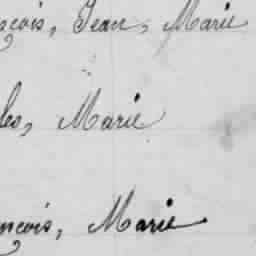 nçois, Jean, Marie
les, Marie
nçois, Marie